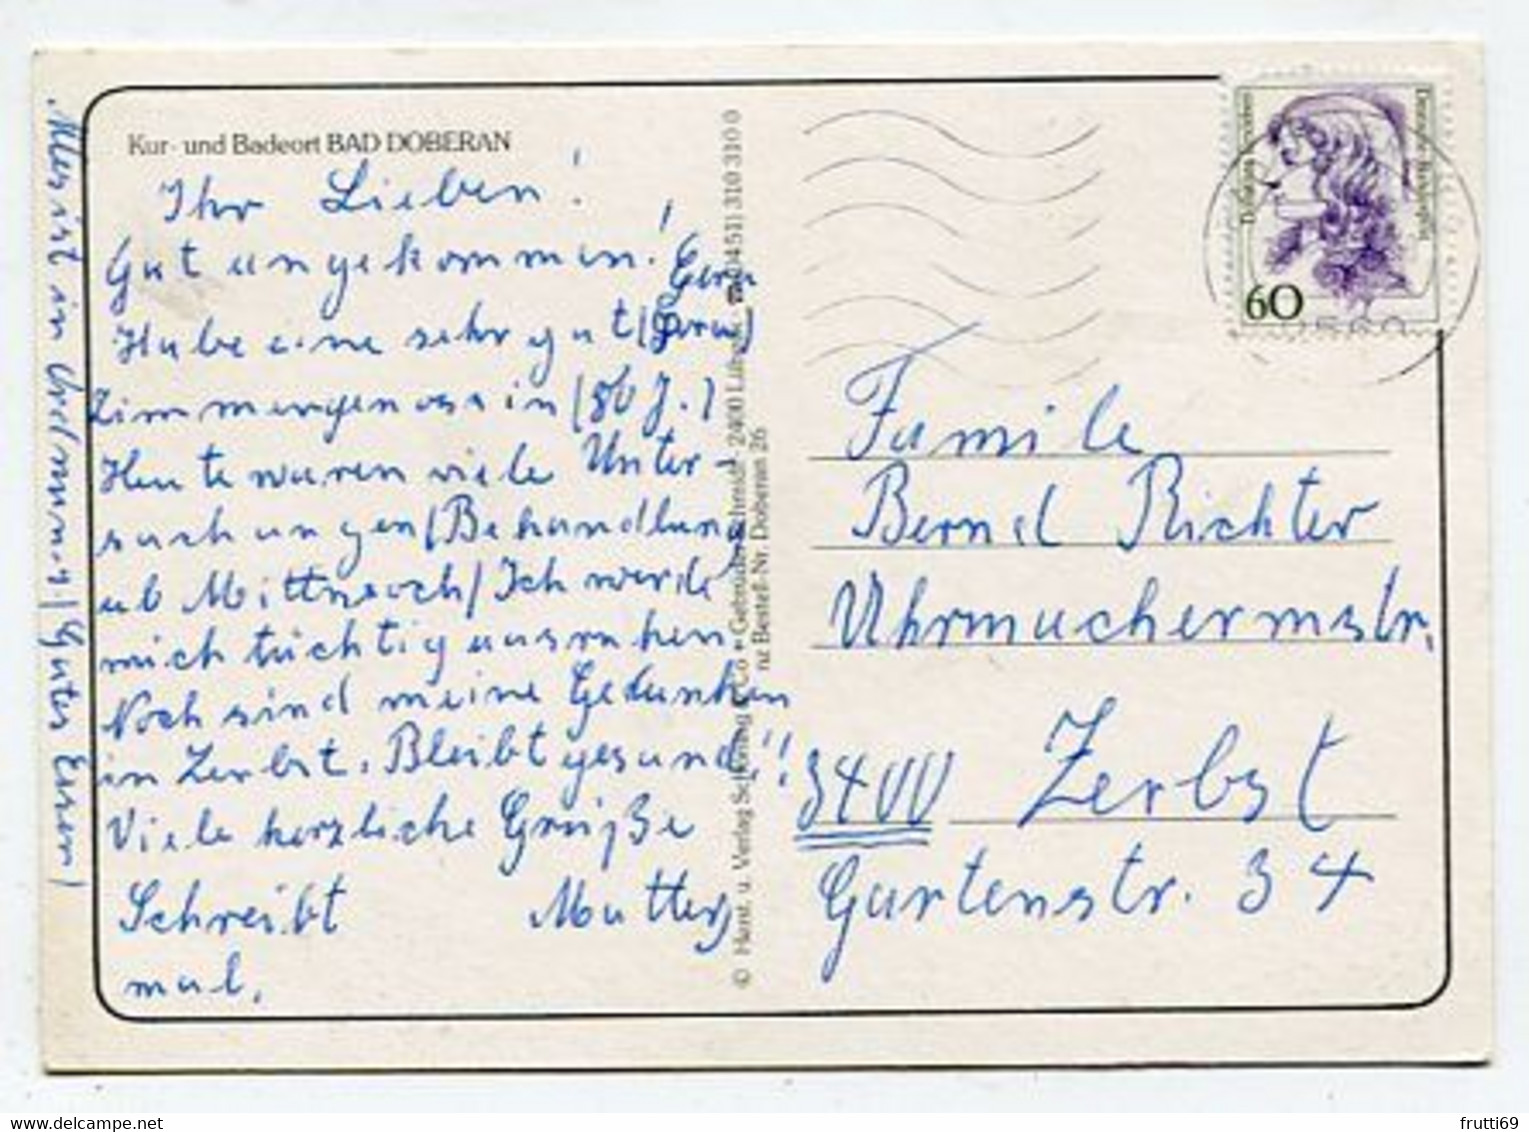 Kur- und Badeort BAD DOBERAN
Ihr Lieben!
Gut angekommen!
Habe eine sehr gut
Zimmergenossin (80 J.)
Heute waren viele Unter-
suchungen/Behandlung
ab Mittwoch/Ich werde
mich tüchtig ausruhen
Noch sind meine Gedanken
in Zerbst. Bleibt gesund!!
Viele herzliche Grüße
Schreibt Mutter
mal.
Alles ist in Ordnung/Gutes Essen/
© Herst. u. Verlag Schöning & Co + Gebrüder Schmidt · 2400 Lübeck · Tel. (0451) 310 310 0
nz Bestell-Nr. Doberan 26
Deutsche Bundespost
60
2560
Familie
Bernd Richter
Uhrmachermstr.
3400 Zerbst
Gartenstr. 34
frutti69